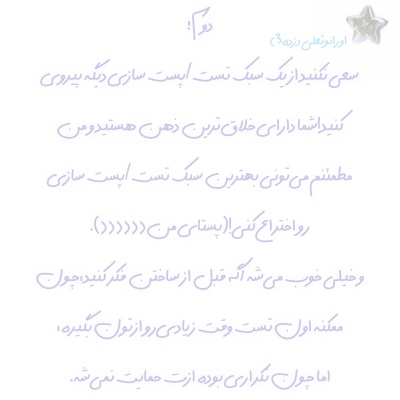 دوم؛
سعی نکنید از یک سبک تست / پست سازی دیگه پیروی
کنید! شما دارای خلاق ترین ذهن هستید و من
مطمئنم می تونی بهترین سبک تست / پست سازی
رو اختراع کنی!(پستای من (((((().
و خیلی خوب می شه اگه قبل از ساختن فکر کنید، چون
ممکنه اون تست وقت زیادی رو ازتون بگیره،
اما چون تکراری بوده ازت حمایت نمی شه.